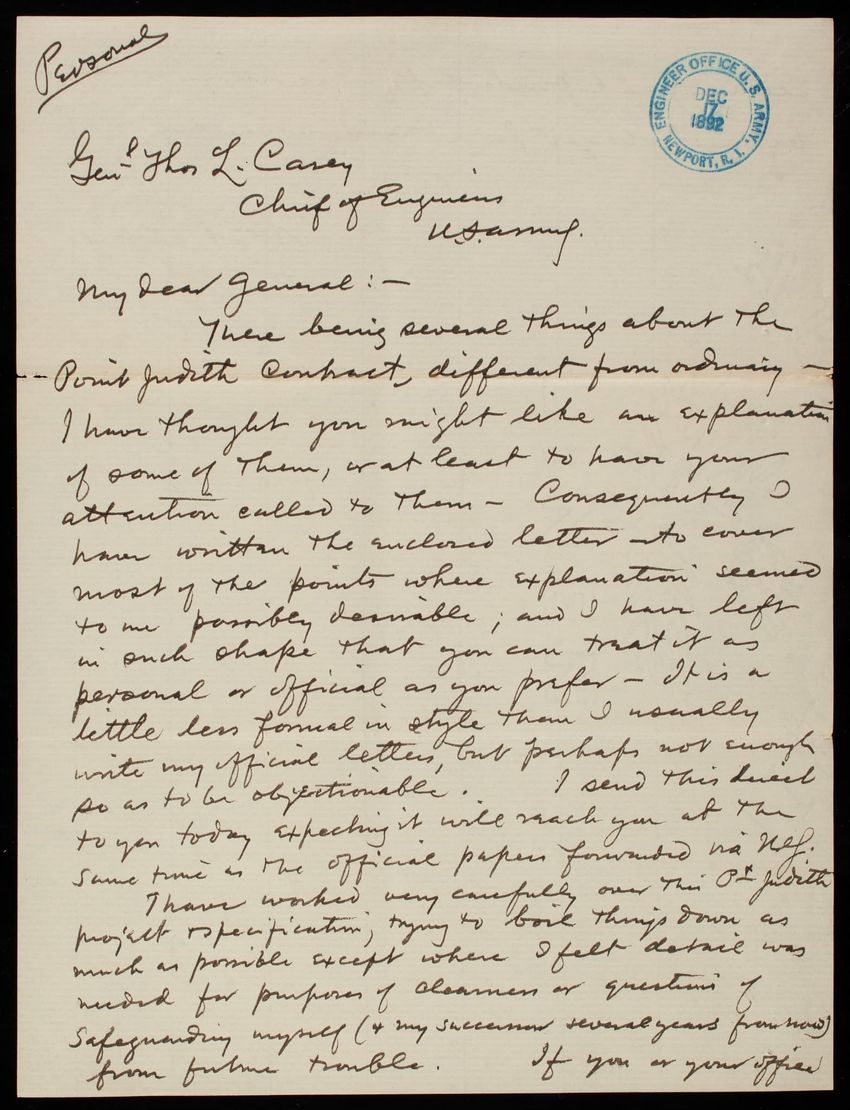 Personal
ENGINEER OFFICE U.S. ARMY.
DEC
17
1892
NEWPORT, R. I.
Genl Thos L. Casey
Chief of Engineers
U.S. army.
My dear General :—
There being several things about the
Point Judith Contract, different from ordinary —
I have thought you might like an explanation
of some of them, or at least to have your
attention called to them — Consequently I
have written the enclosed letter — to cover
most of the points where explanation seemed
to me possibly desirable ; and I have left
in such shape that you can treat it as
personal or official as you prefer — It is a
little less formal in style than I usually
write my official letters, but perhaps not enough
so as to be objectionable. I send this direct
to you today expecting it will reach you at the
same time as the official papers forwarded via N.Y.
I have worked very carefully over this Pt Judith
project & specification, trying to boil things down as
much as possible except where I felt detail was
needed for purposes of clearness or questions of
safeguarding myself (& my successor several years from now)
from future trouble. If you or your office